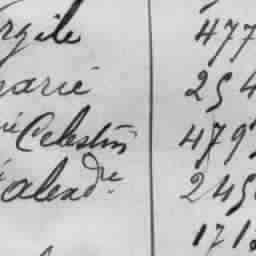 rgile 477
marie 254
rie Celestin 479
alexdre 245
171